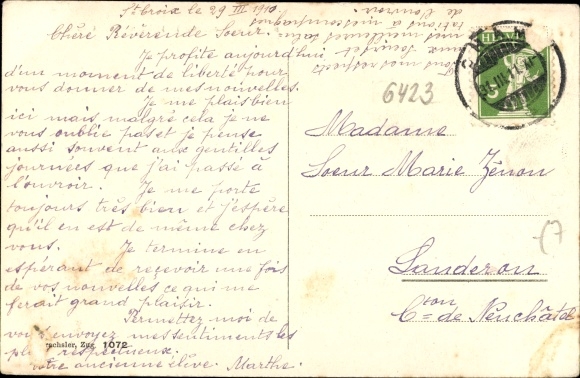 St Croix le 29 III 1910
Chère Révérende Soeur
Je profite aujourd'hui
d'une moment de liberté pour
vous donner de mes nouvelles.
Je me plais bien
ici mais malgré cela je ne
vous oublie pas et je pense
aussi souvent aux gentilles
journées que j'ai passé à
l'ouvroir. Je me porte
toujours très bien et j'espère
qu'il en est de même chez
vous. Je termine en
espérant de recevoir une fois
de vos nouvelles ce qui me
ferait grand plaisir.
Permettez moi de
vous envoyez mes sentiments les
plus respectueux.
votre ancienne élève. Marthe.
mes respects
aux Soeurs et
mes meilleures salu
tations à mes compagnes
de l'ouvroir.
chsler, Zug. 1072
6423
HELVETIA
Madame
Soeur Marie Zénon
Landeron
Cton de Neuchâtel
(7